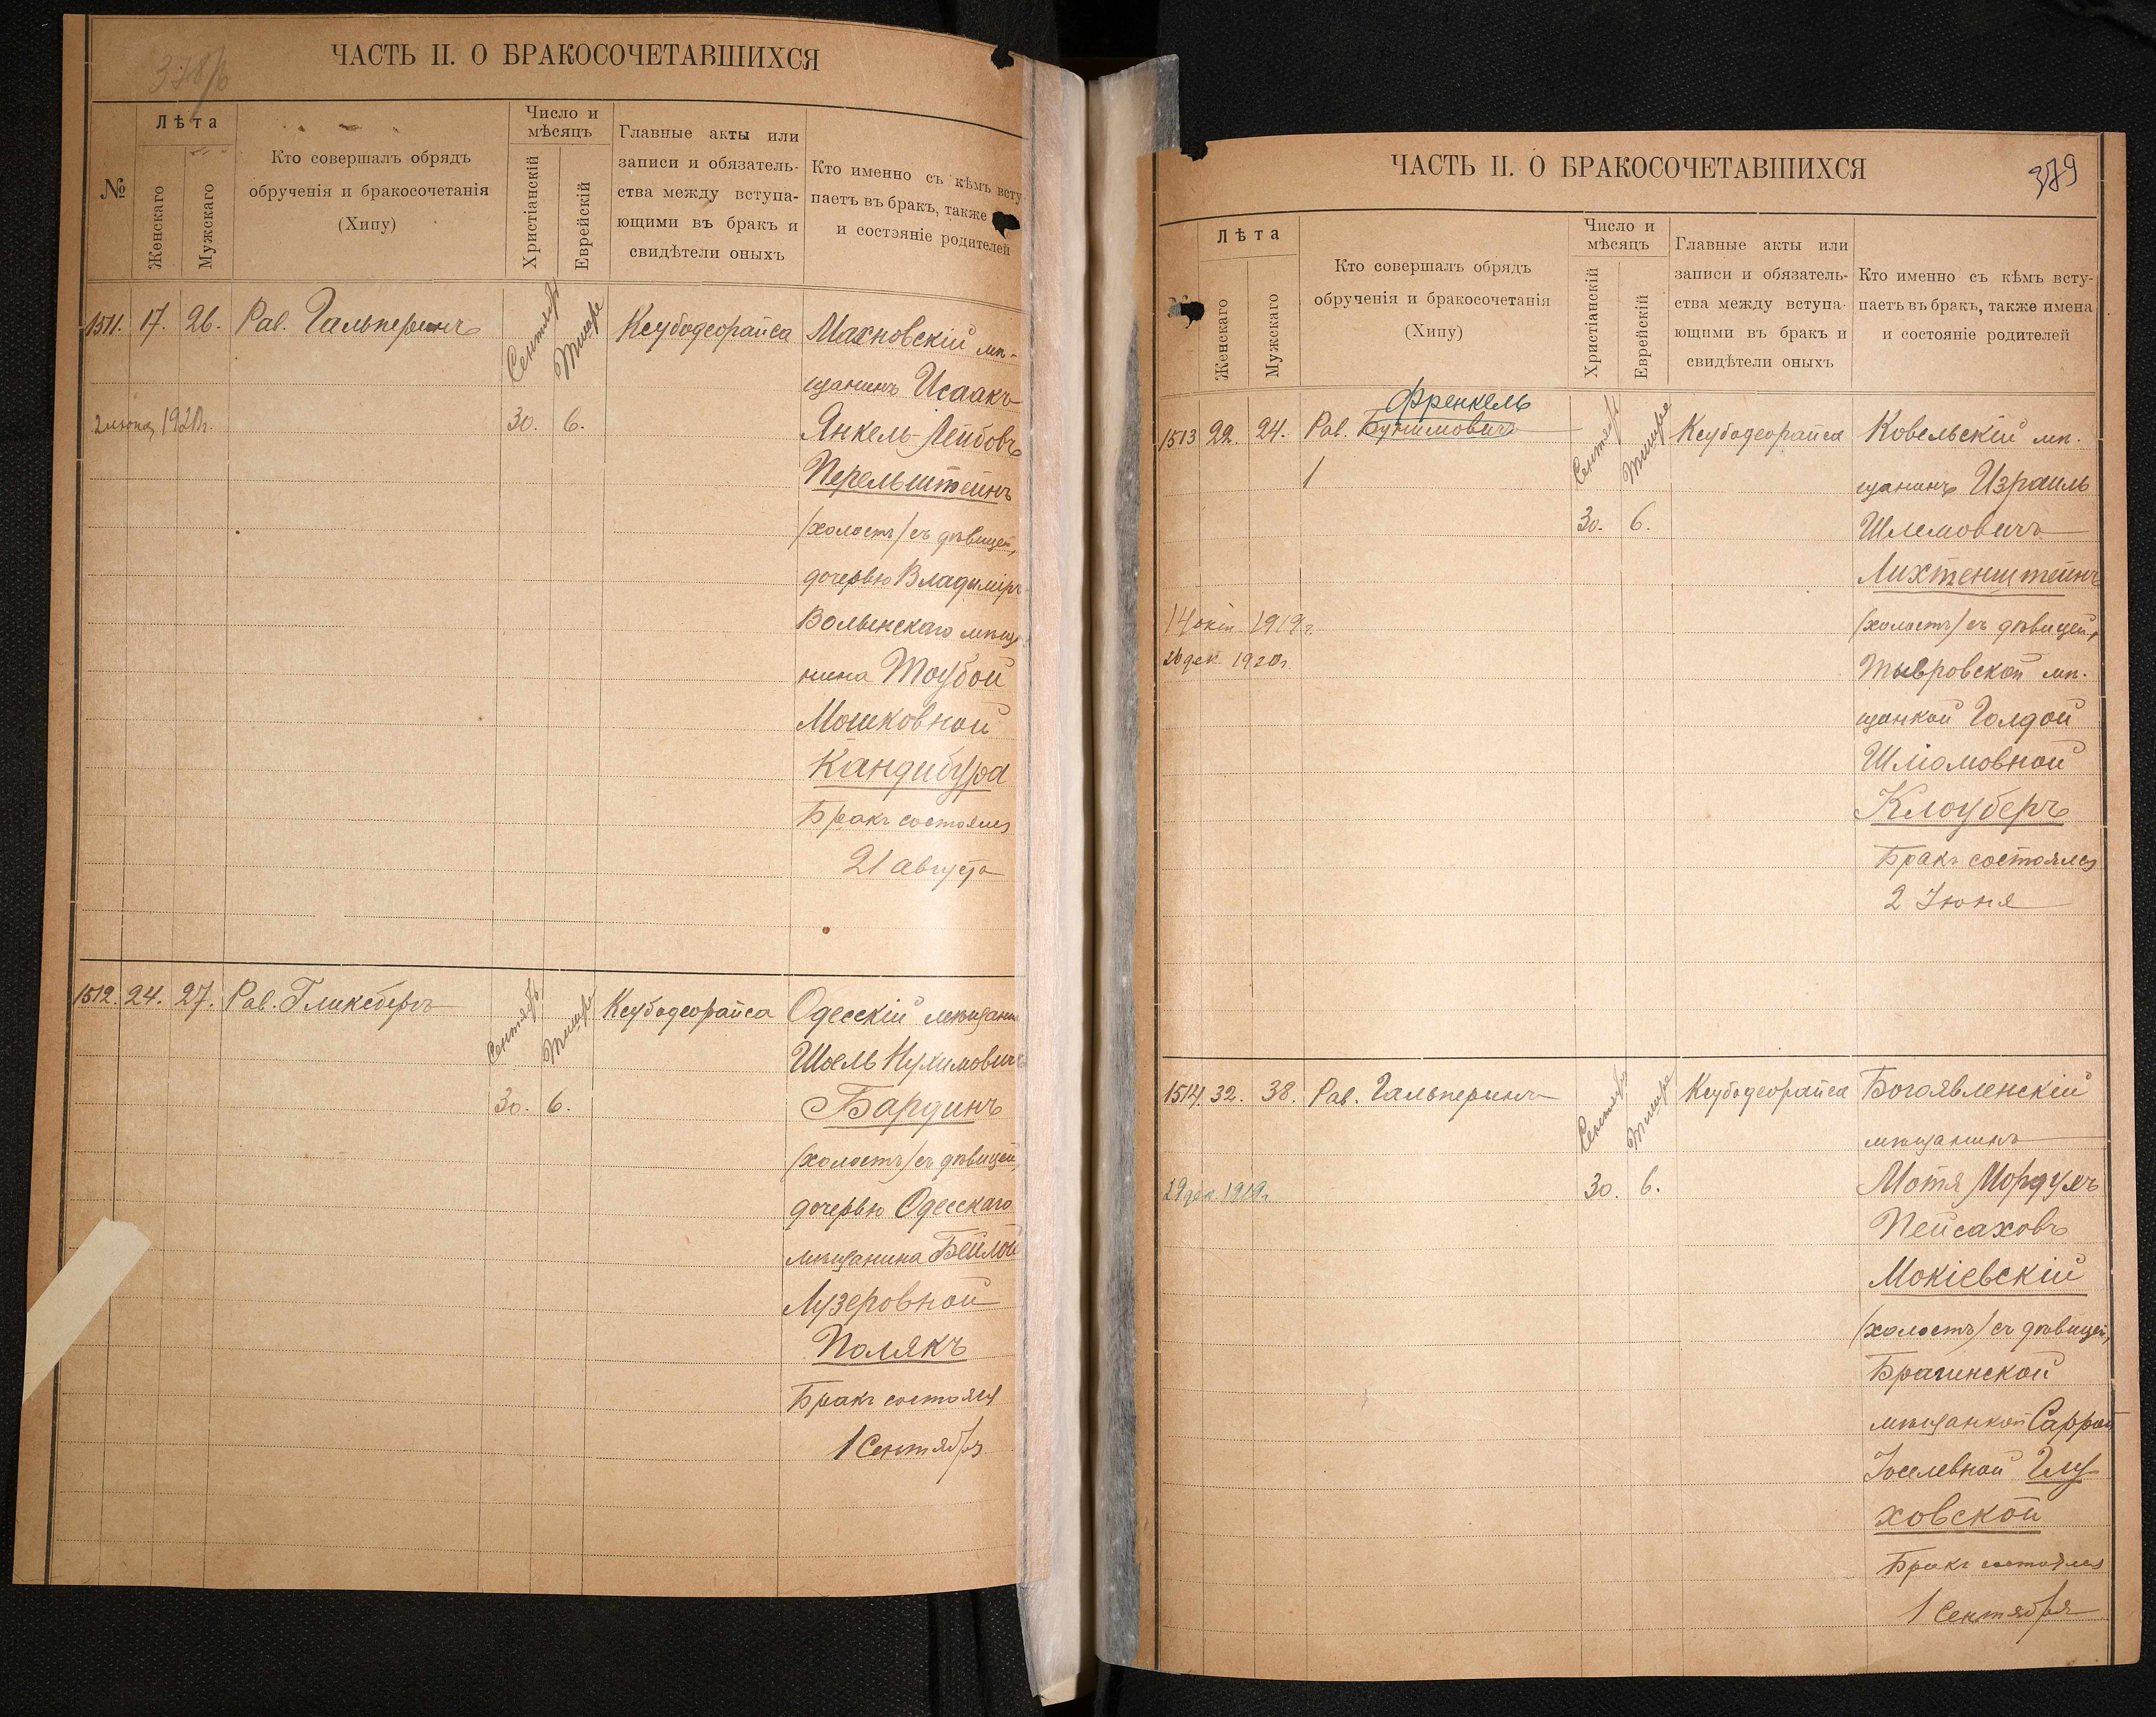 378/б
ЧАСТЬ II. О БРАКОСОЧЕТАВШИХСЯ
№
Лѣта
Женскаго
Мужскаго
Кто совершалъ обрядъ
обрученія и бракосочетанія
(Хипу)
Число и
мѣсяцъ
Христіанскій
Еврейскій
Главные акты или
записи и обязатель-
ства между вступа-
ющими въ бракъ и
свидѣтели оныхъ
Кто именно съ кѣмъ всту
паетъ въ бракъ, также
и состояніе родителей
1511. 17. 26. Рав. Гальперинъ
Сентябр
Тишре
30. 6.
Ксубодеорайса
Махновскій мѣ-
щанинъ Исаакъ
Янкель-Лейбовъ
Перельштейнъ
(холостъ) съ дѣвицей,
дочерью Владимір
Волынскаго мѣща
нина Тоубой
Мошковной
Кандибура
Бракъ состоялся
21 августа
1920г.
1512. 24. 27. Рав. Гликсбергъ
Сентябрь
Тишре
30. 6.
Ксубодеорайса
Одесскій мѣщани
Шоель Нухимович
Бардинъ
(холостъ) съ дѣвицей,
дочерью Одесскаго
мѣщанина Бейлой
Лузеровной
Полякъ
Бракъ состоялся
1 Сентября
ЧАСТЬ II. О БРАКОСОЧЕТАВШИХСЯ
379
Лѣта
Женскаго
Мужскаго
Кто совершалъ обрядъ
обрученія и бракосочетанія
(Хипу)
Число и
мѣсяцъ
Христіанскій
Еврейскій
Главные акты или
записи и обязатель-
ства между вступа-
ющими въ бракъ и
свидѣтели оныхъ
Кто именно съ кѣмъ всту-
паетъ въ бракъ, также имена
и состояніе родителей
Френкель
1513 22. 24. Рав. Бунимовичъ
Сентябр
Тишре
30. 6.
Ксубодеорайса
Ковельскій мѣ-
щанинъ Израиль
Шлемовичъ
Лихтенштейнъ
(холостъ) съ дѣвицей,
Тывровской мѣ-
щанкой Голдой
Шліомовной
Клоуберъ
Бракъ состоялся
2 Іюня
1919г.
26 дек. 1920г.
1514. 32. 38. Рав. Гальперинъ
Сентябрь
Тишре
30. 6.
Ксубодеорайса
Богоявленскій
мѣщанинъ
Мотя Мордухъ
Пейсаховъ
Мокіевскій
(холостъ) съ дѣвицей,
Брагинской
мѣщанкой Саррой
Іоселевной Глу
ховской
Бракъ состоялся
1 Сентября
29 дек. 1919г.